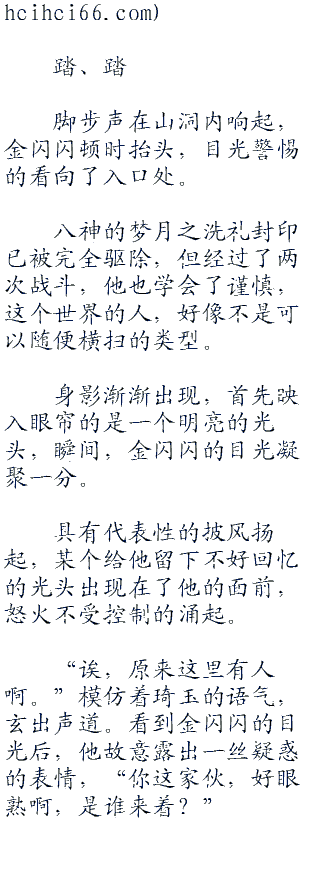 hcihci66.com)
踏、踏
脚步声在山洞内响起，
金闪闪顿时抬头，目光警惕
的看向了入口处。
八神的梦月之洗礼封印
已被完全驱除，但经过了两
次战斗，他也学会了谨慎，
这个世界的人，好像不是可
以随便横扫的类型。
身影渐渐出现，首先映
入眼帘的是一个明亮的光
头，瞬间，金闪闪的目光凝
聚一分。
具有代表性的披风扬
起，某个给他留下不好回忆
的光头出现在了他的面前，
怒火不受控制的涌起。
“诶，原来这里有人
啊。”模仿着琦玉的语气，
玄出声道。看到金闪闪的目
光后，他故意露出一丝疑惑
的表情，“你这家伙，好眼
熟啊，是谁来着？”